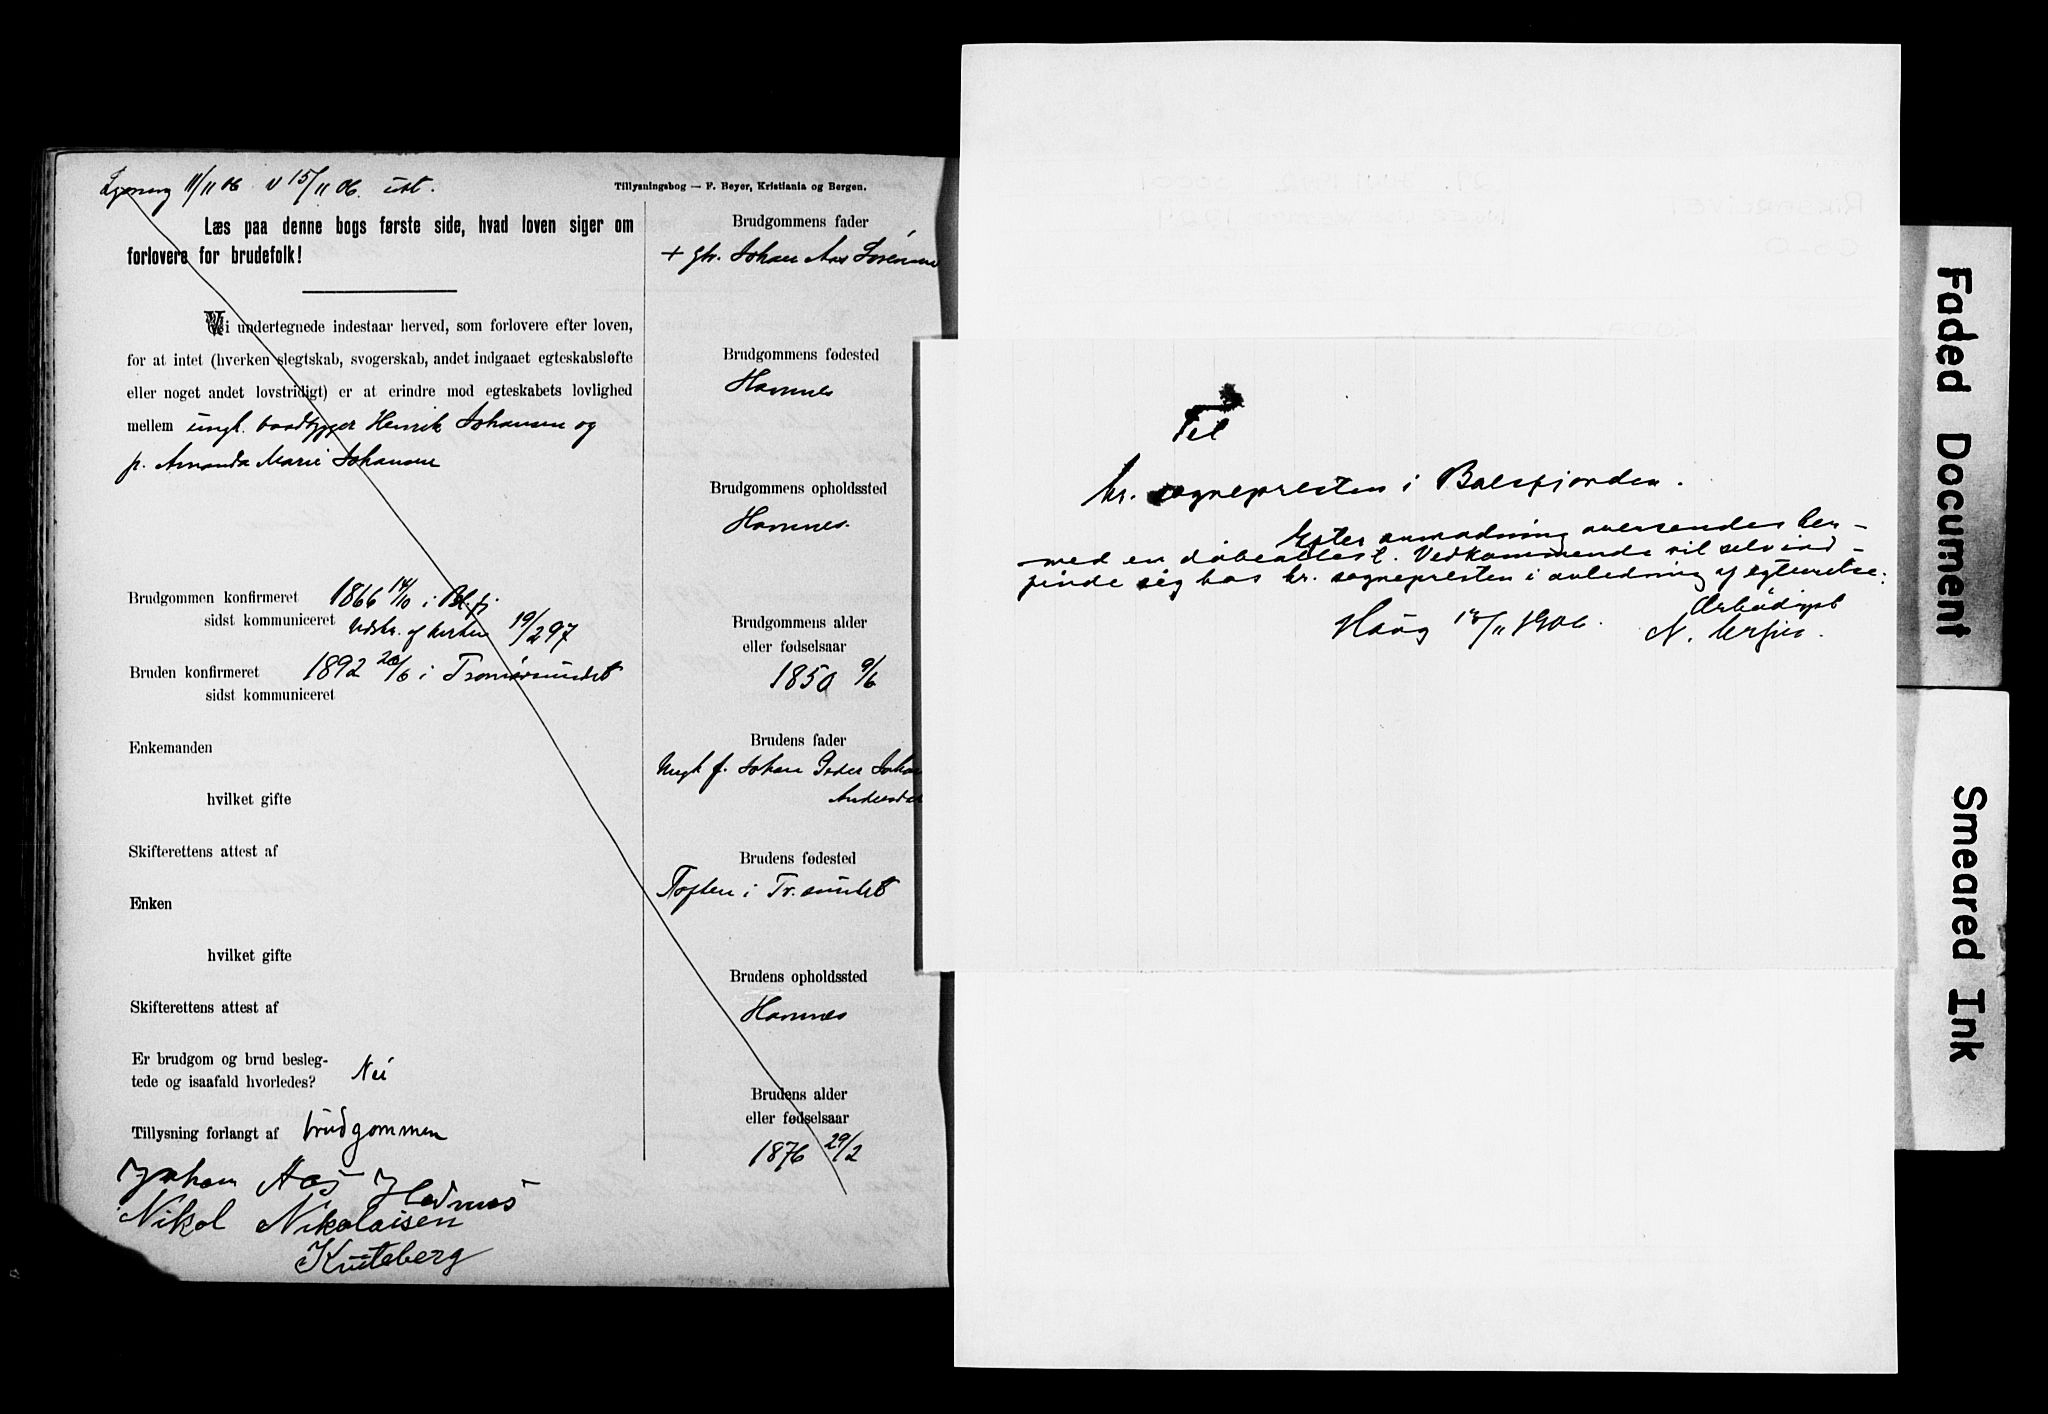 11/11 06 v 15/11 06. ust.
Tillysningsbog — F. Beyer, Kristiania og Bergen.
Læs paa denne bogs første side, hvad loven siger om
forlovere for brudefolk!
Vi undertegnede indestaar herved, som forlovere efter loven,
for at intet (hverken slegtskab, svogerskab, andet indgaaet egteskabsløfte
eller noget andet lovstridigt) er at erindre mod egteskabets lovlighed
mellem ungk. baadbygger Henrik Johansen og
p. Amanda Marie Johansen
Brudgommen konfirmeret 1866 14/10 i Bl.fj
sidst kommuniceret Udskr. af kirken 19/2 97
Bruden konfirmeret 1892 26/6 i Tromsøsundet
sidst kommuniceret
Enkemanden
hvilket gifte
Skifterettens attest af
Enken
hvilket gifte
Skifterettens attest af
Er brudgom og brud besleg-
tede og isaafald hvorledes? Nei
Tillysning forlangt af brudgommen
Johan Aas Hamnes
Nikol Nikolaisen
Kuteberg
Brudgommens fader
+ gbr. Johan Aas Sørensen
Brudgommens fødested
Hamnes
Brudgommens opholdssted
Hamnes.
Brudgommens alder
eller fødselsaar
1850 9/6
Brudens fader
Ungk f. Johan Peder Johan
Andersdal
Brudens fødested
Toften i Tr.sundet
Brudens opholdssted
Hamnes
Brudens alder
eller fødselsaar
1876 29/2
Til
hr. sognepresten i Balsfjorden.
Efter anmodning oversendes her-
med en dåbsattest. Vedkommende vil selv ind-
finde sig hos hr. sognepresten i anledning af egtevielse.
Haug 13/11 1906.
Ærbødigst
N.
Faded Document
Smeared Ink